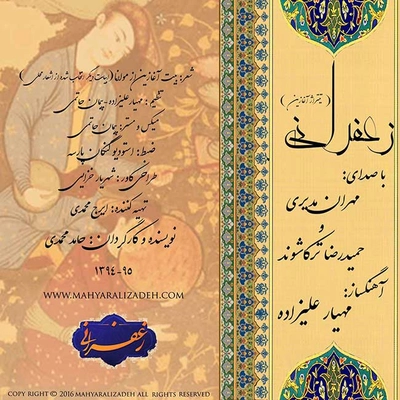 (تیتراژ آغازین)
زعفرانی
با صدای:
مهران مدیری
و
حمیدرضا ترکاشوند
آهنگساز:
مهیار علیزاده
شعر: بیت آغازین از مولانا (ابیات دیگر انتخاب شده از اشعار محلی)
تنظیم: مهیار علیزاده - پیمان حاتمی
میکس و مستر: پیمان حاتمی
ضبط: استودیو کنگان پارسه
طراحی کاور: شهریار خزایی
تهیه کننده: ایرج محمدی
نویسنده و کارگردان: حامد محمدی
۱۳۹۴-۹۵
WWW.MAHYARALIZADEH.COM
زعفرانی
COPY RIGHT © 2016 MAHYARALIZADEH ALL RIGHTS RESERVED